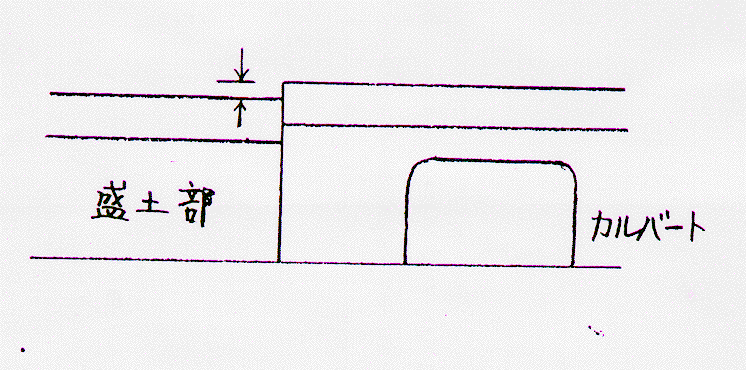 盛土部
カルバート